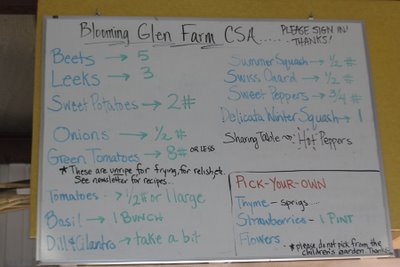 Blooming Glen Farm CSA...... PLEASE SIGN IN! THANKS!
Beets → 5
Leeks → 3
Sweet Potatoes → 2#
Onions → 1/2 #
Green Tomatoes → 8# OR LESS
* These are unripe for frying, for relish, etc
See newsletter for recipes...
Tomatoes → 1/2# or 1 large
Basil → 1 BUNCH
Dill & Cilantro → take a bit
Summer Squash → 1/2 #
Swiss Chard → 1/2 #
Sweet Peppers → 3/4 #
Delicata Winter Squash → 1
Sharing Table ~ Hot Peppers
PICK-YOUR-OWN
Thyme - sprigs...
Strawberries - 1 PINT
Flowers - * please do not pick from the
children's garden. Thanks.